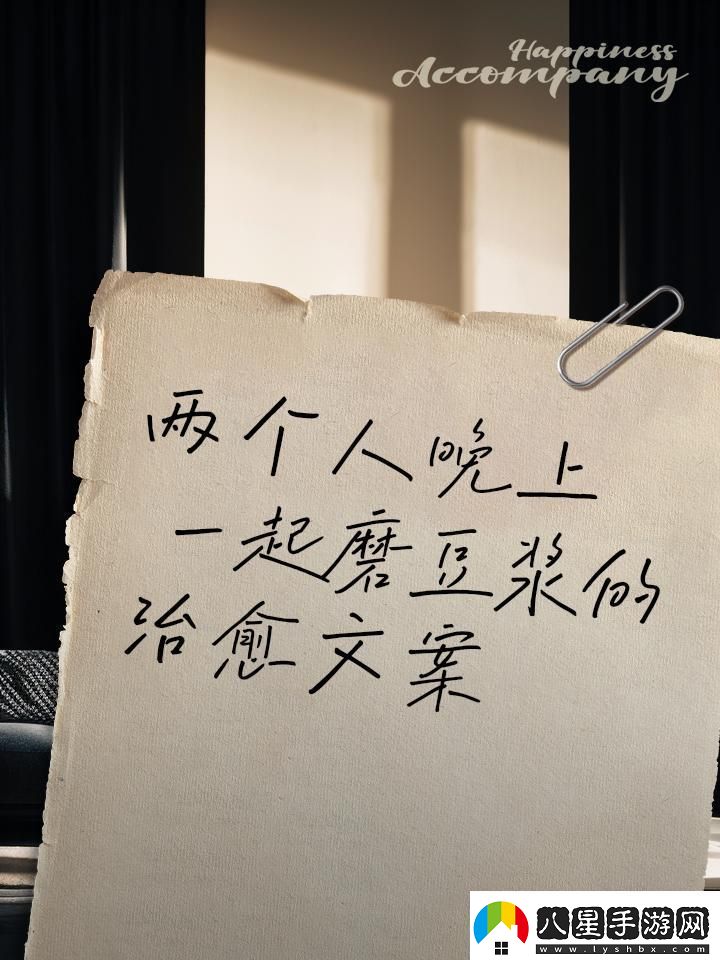 Happiness
Accompany
两个人晚上
一起磨豆浆的
治愈文案
八星手游网
www.lyshbx.com